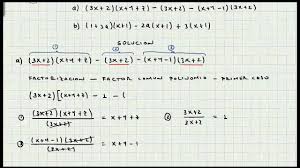 a) (3x+2)(x+y+z) - (3x+2) - (x+y-1)(3x+2)
b) (1+3a)(x+1) - 2a(x+1) + 3(x+1)
SOLUCION
① ② ③
a) (3x+2)(x+y+z) - (3x+2) - (x+y-1)(3x+2)
FACTORIZACION - FACTOR COMUN POLINOMIO - PRIMER CASO
(3x+2)[(x+y+z) - 1 - (
① (3x+2)(x+y+z) / (3x+2) = x+y+z ② 3x+2 / 3x+2 = 1
③ (x+y-1)(3x+2) / (3x+2) = x+y-1